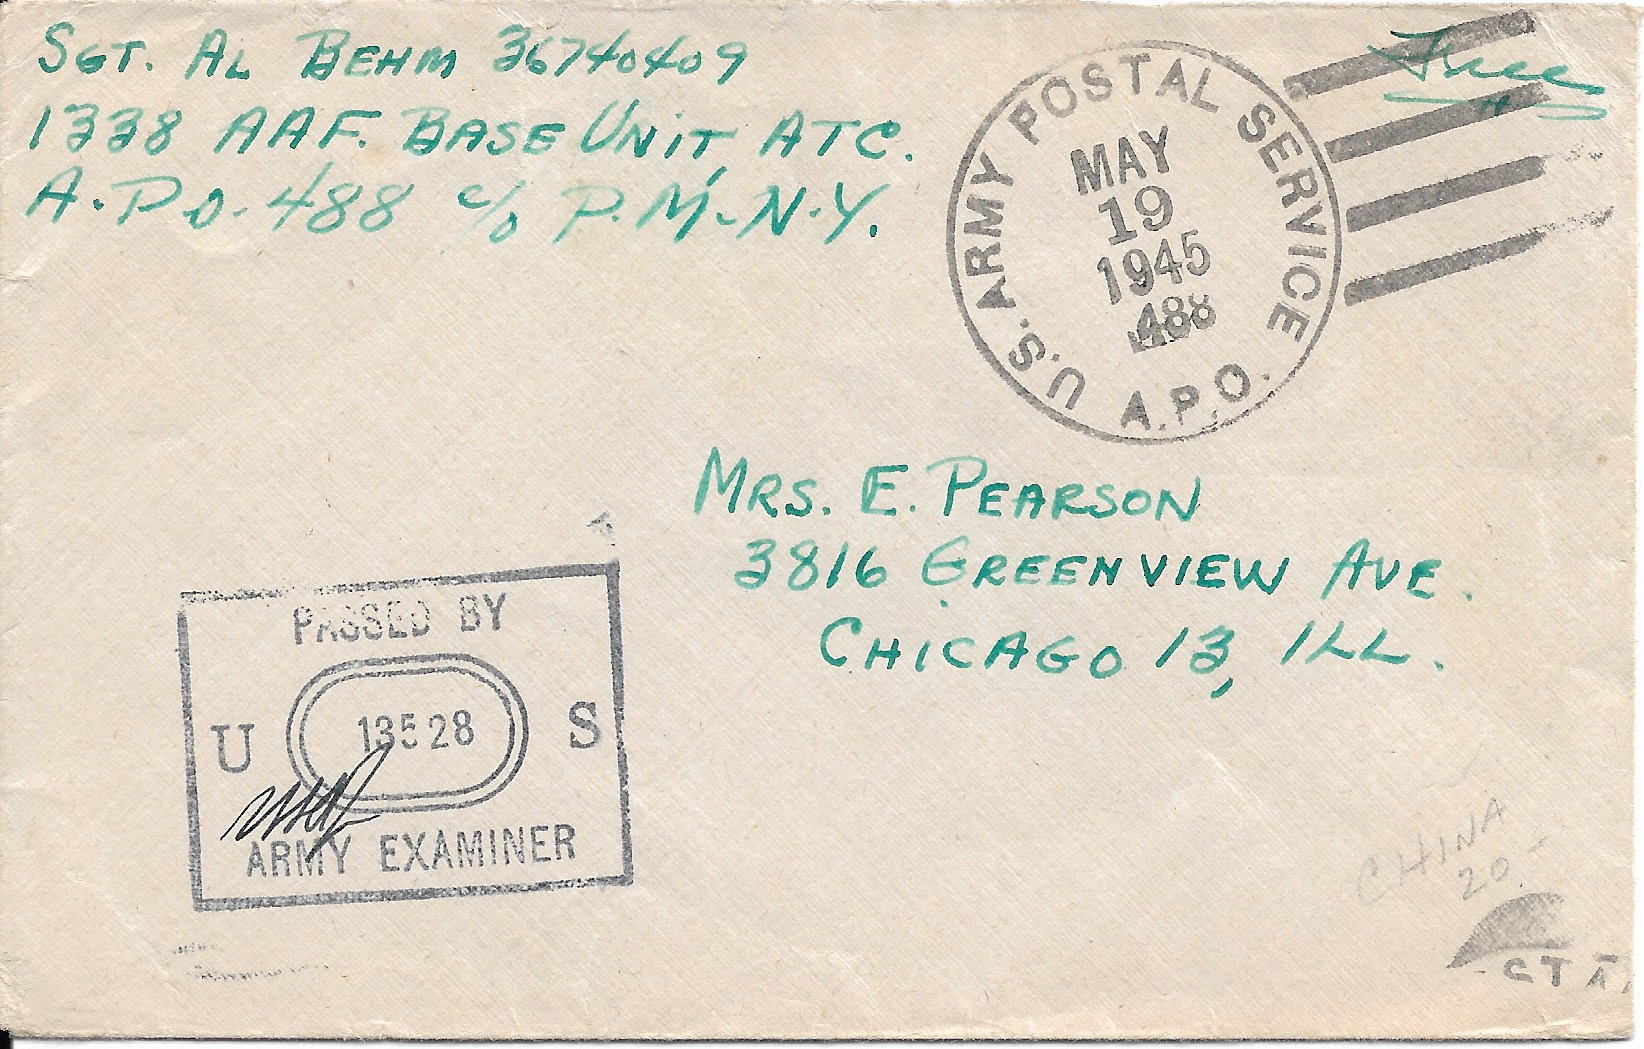 SGT. AL BEHM 36740409
1338 AAF. BASE UNIT, ATC.
A.P.O. 488 c/o P.M. N.Y.
Free
U.S. ARMY POSTAL SERVICE
MAY
19
1945
488
A.P.O.
MRS. E. PEARSON
3816 GREENVIEW AVE.
CHICAGO 13, ILL.
PASSED BY
U 13528 S
ARMY EXAMINER
CHINA
20-